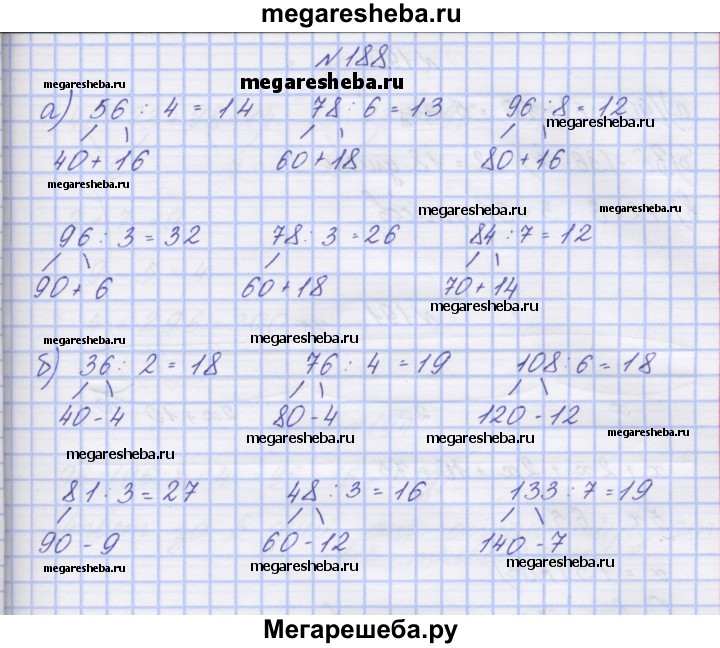 megaresheba.ru
N 188
megaresheba.ru megaresheba.ru
а) 56 : 4 = 14 78 : 6 = 13 96 : 8 = 12
megaresheba.ru
40 + 16 60 + 18 80 + 16
megaresheba.ru
megaresheba.ru megaresheba.ru
96 : 3 = 32 78 : 3 = 26 84 : 7 = 12
90 + 6 60 + 18 70 + 14
megaresheba.ru
megaresheba.ru megaresheba.ru
б) 36 : 2 = 18 76 : 4 = 19 108 : 6 = 18
40 - 4 80 - 4 120 - 12
megaresheba.ru megaresheba.ru megaresheba.ru
megaresheba.ru
81 : 3 = 27 48 : 3 = 16 133 : 7 = 19
90 - 9 60 - 12 140 - 7
megaresheba.ru megaresheba.ru megaresheba.ru
Мегарешеба.ру